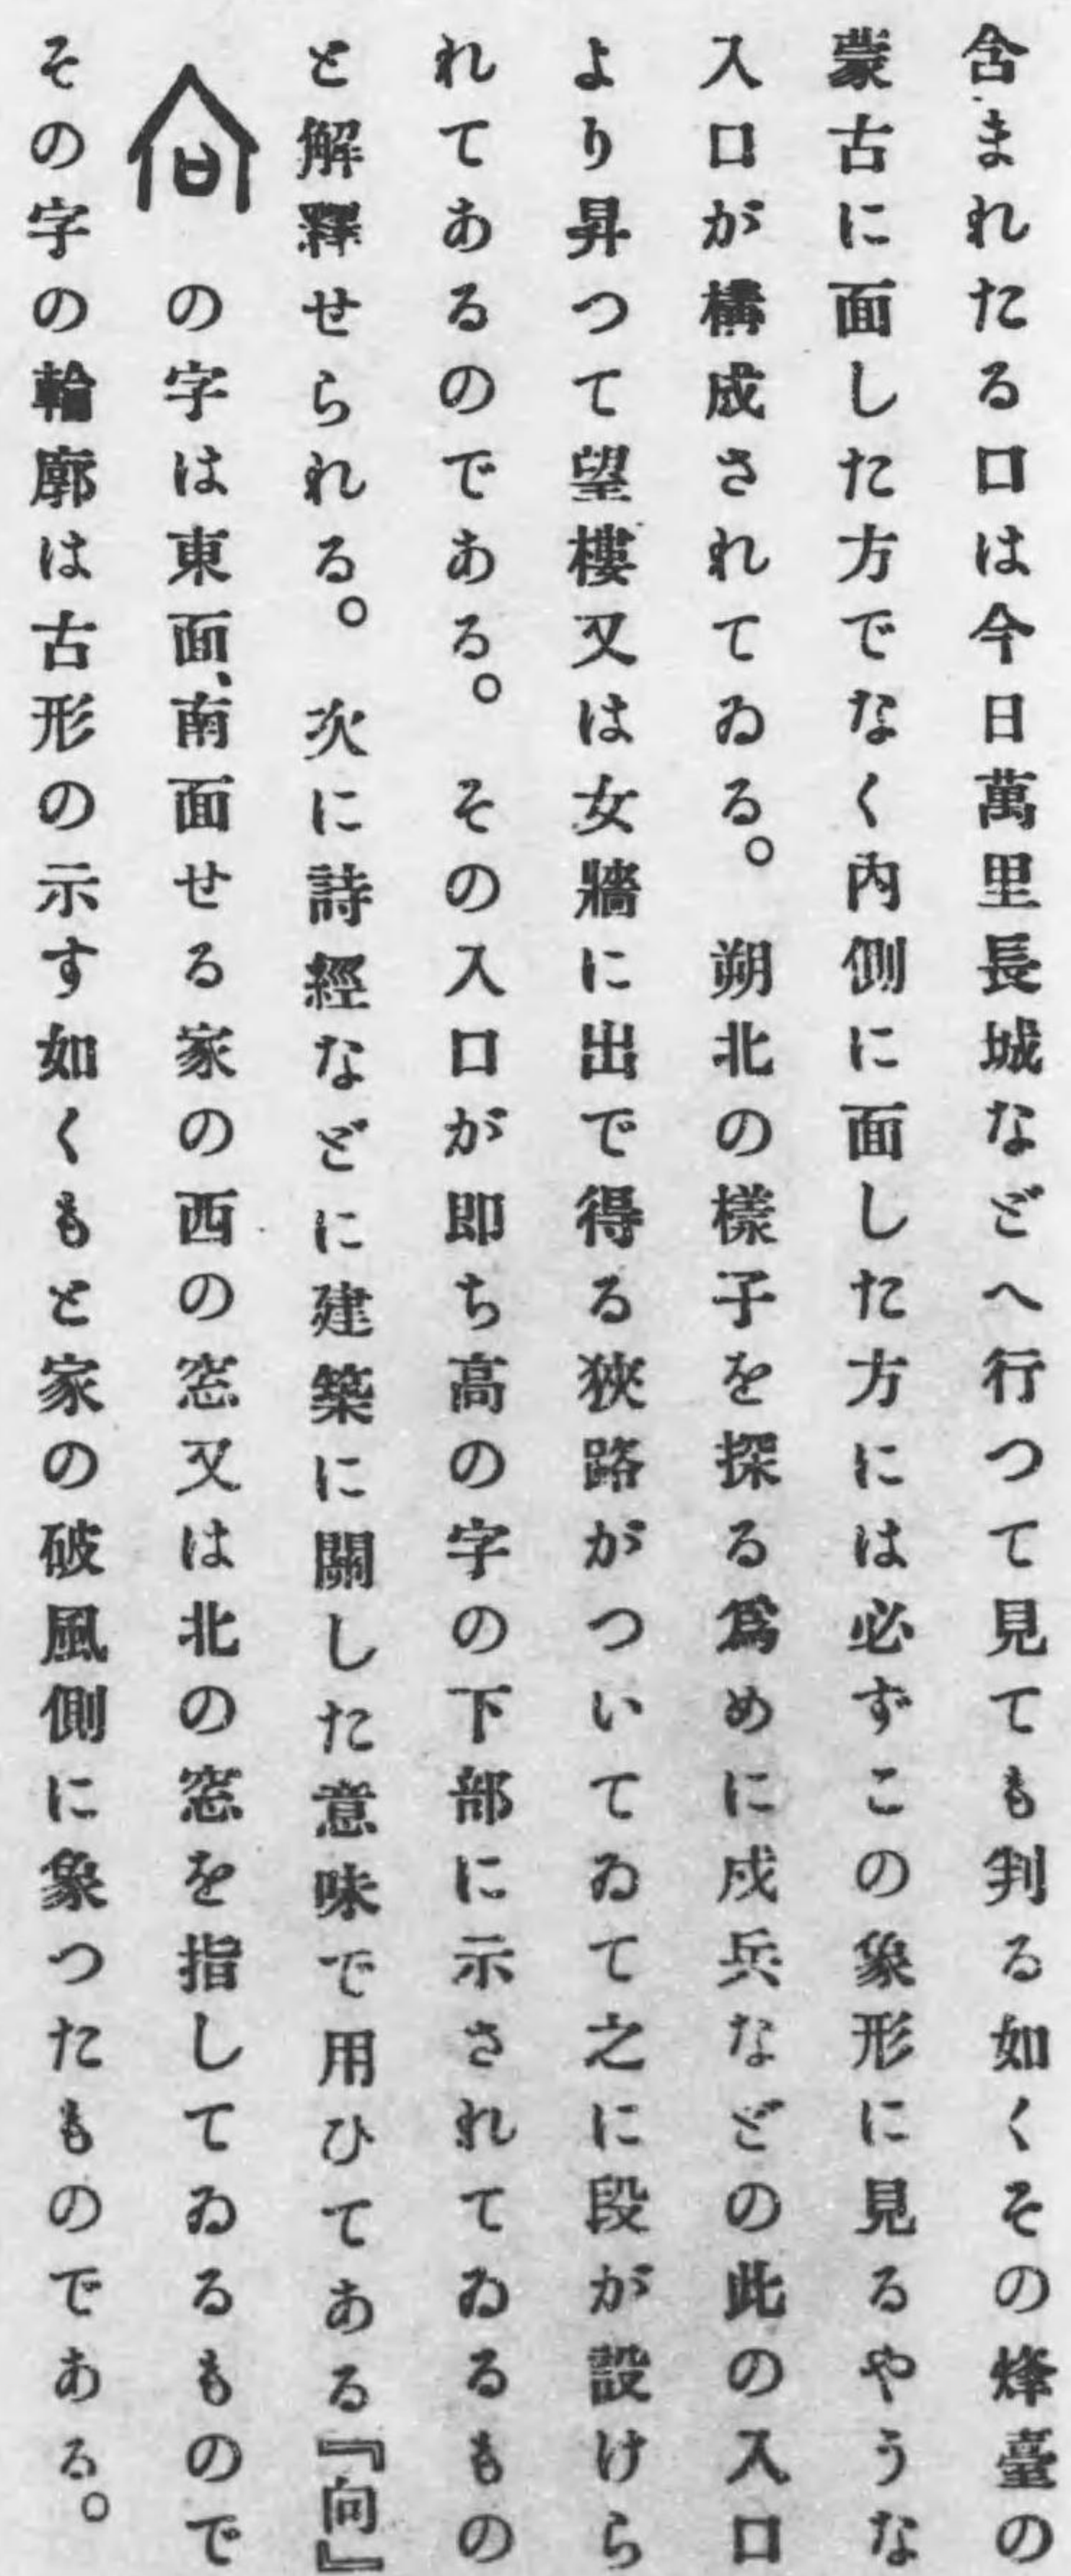 含まれたる口は今日萬里長城などへ行つて見ても判る如くその烽臺の
蒙古に面した方でなく內側に面した方には必ずこの象形に見るやうな
入口が構成されてゐる。朔北の樣子を探る爲めに戍兵などの此の入口
より昇つて望樓又は女牆に出で得る狹路がついてゐて之に段が設けら
れてあるのである。その入口が即ち高の字の下部に示されてゐるもの
と解釋せられる。次に詩經などに建築に關した意味で用ひてある『向』
の字は東面、南面せる家の西の窓又は北の窓を指してゐるもので
その字の輪廓は古形の示す如くもと家の破風側に象つたものである。